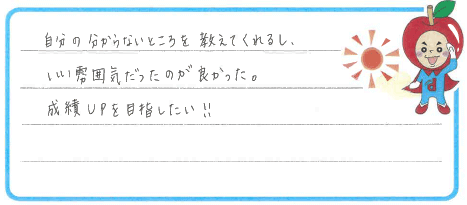 自分の分からないところを教えてくれるし、
いい雰囲気だったのが良かった。
成績UPを目指したい!!
d